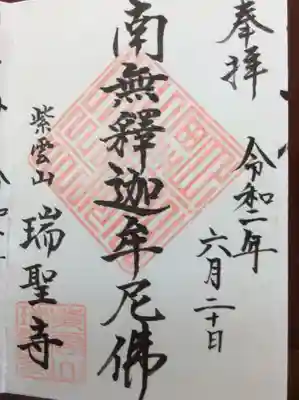 奉拝
令和一年
六月二十日
南無釋迦牟尼佛
紫雲山
瑞聖寺